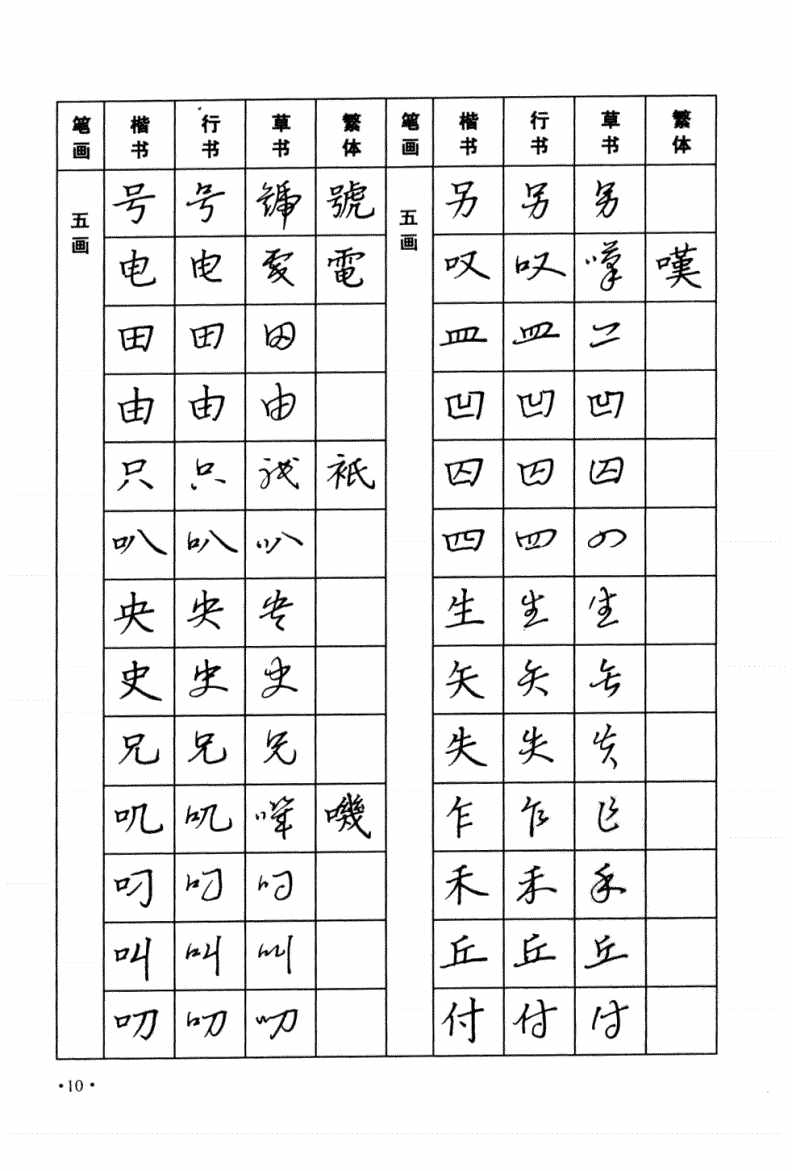 笔画 楷书 行书 草书 繁体 笔画 楷书 行书 草书 繁体
五画 号 号 号 號 五画 另 另 另
电 电 电 電 叹 叹 叹 嘆
田 田 田 皿 皿 皿
由 由 由 凹 凹 凹
只 只 只 祇 囚 囚 囚
叭 叭 叭 四 四 四
央 央 央 生 生 生
史 史 史 矢 矢 矢
兄 兄 兄 失 失 失
叽 叽 叽 嘰 乍 乍 乍
叼 叼 叼 禾 禾 禾
叫 叫 叫 丘 丘 丘
叨 叨 叨 付 付 付
·10·